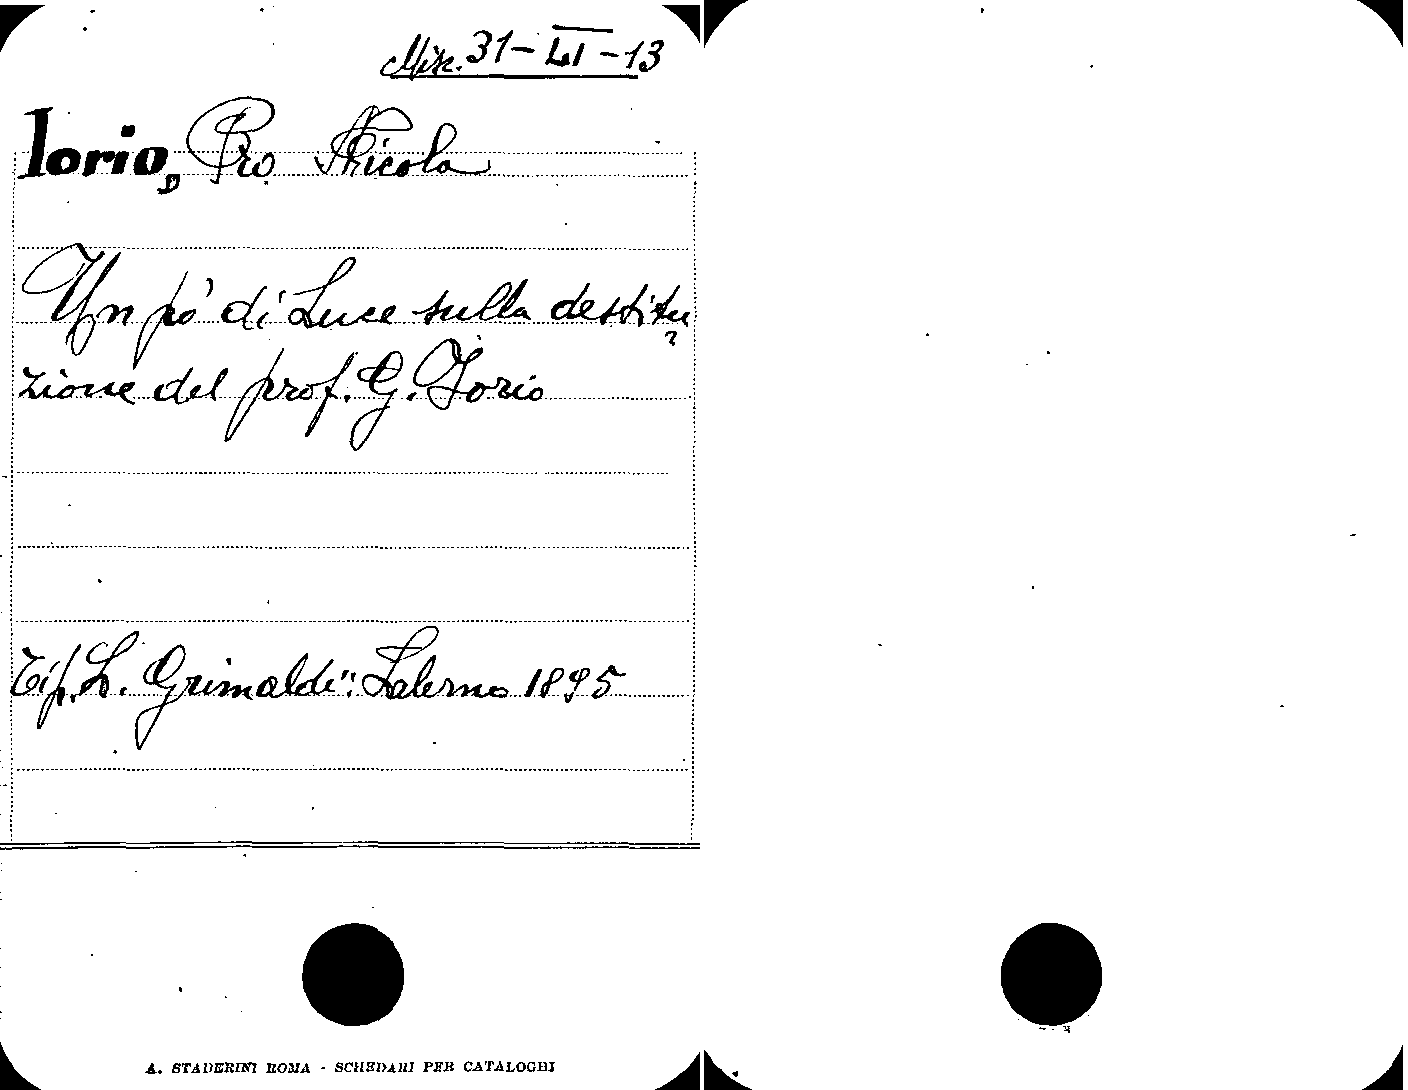 Misc. 31-LI-13
Iorio, Pro Nicola
Un pò di Luce sulla destitu
zione del prof. G. Iorio
Tip. L. Grimaldi": Salerno 1895
A. STADERINI ROMA - SCHEDARI PER CATALOGHI